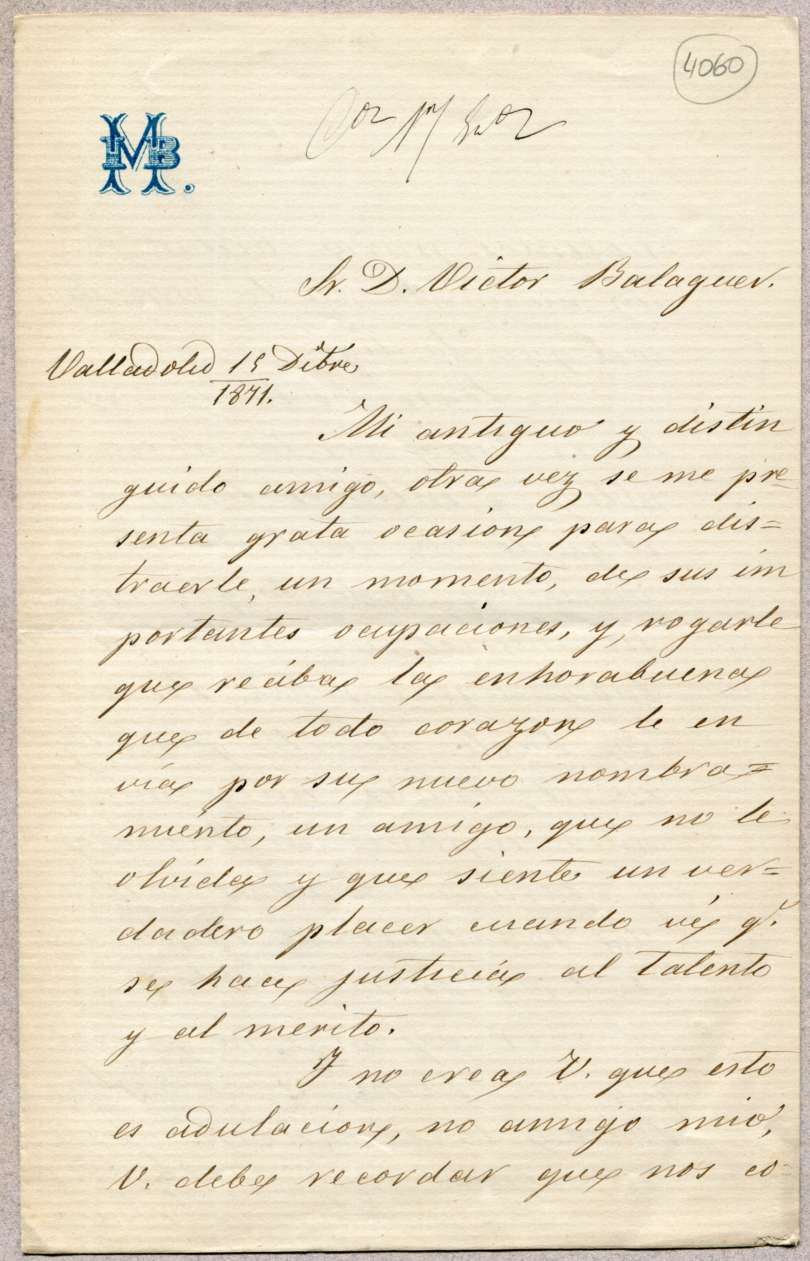 4060
MB.
Sr. D. Victor Balaguer.
Valladolid 15 Dibre
1871.
Mi antiguo y distin
guido amigo, otra vez se me pre-
senta grata ocasion para dis-
traerle, un momento, de sus im
portantes ocupaciones, y, rogarle
que reciba la enhorabuena
que de todo corazon le en
via por su nuevo nombra-
miento, un amigo, que no le
olvida y que siente un ver-
dadero placer cuando vé q.
se hace justicia al talento
y al merito.
Y no crea V. que esto
es adulacion, no amigo mio,
V. debe recordar que nos co-